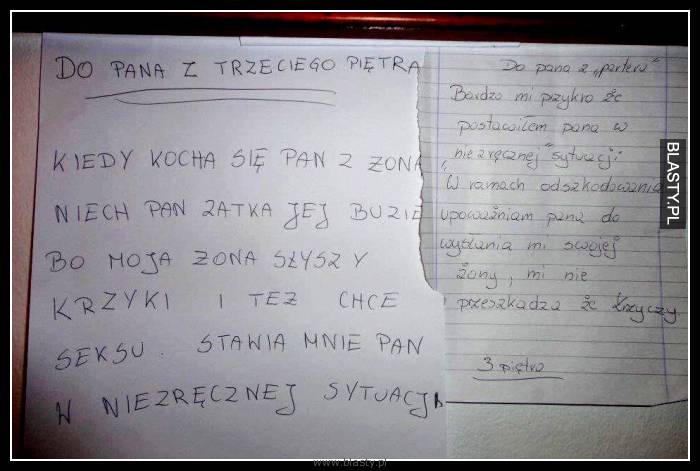 DO PANA Z TRZECIEGO PIĘTRA
KIEDY KOCHA SIĘ PAN Z ZONA
NIECH PAN ZATKA JEJ BUZIE
BO MOJA ZONA SŁYSZY
KRZYKI I TEZ CHCE
SEKSU. STAWIA MNIE PAN
W NIEZRĘCZNEJ SYTUACJI
Do pana z „parteru"
Bardzo mi przykro że
postawiłem pana w
„niezręcznej" sytuacji.
W ramach odszkodowania
upoważniam pana do
wysłania mi swojej
żony, mi nie
przeszkadza że krzyczy
3 piętro
BLASTY.PL
www.blasty.pl